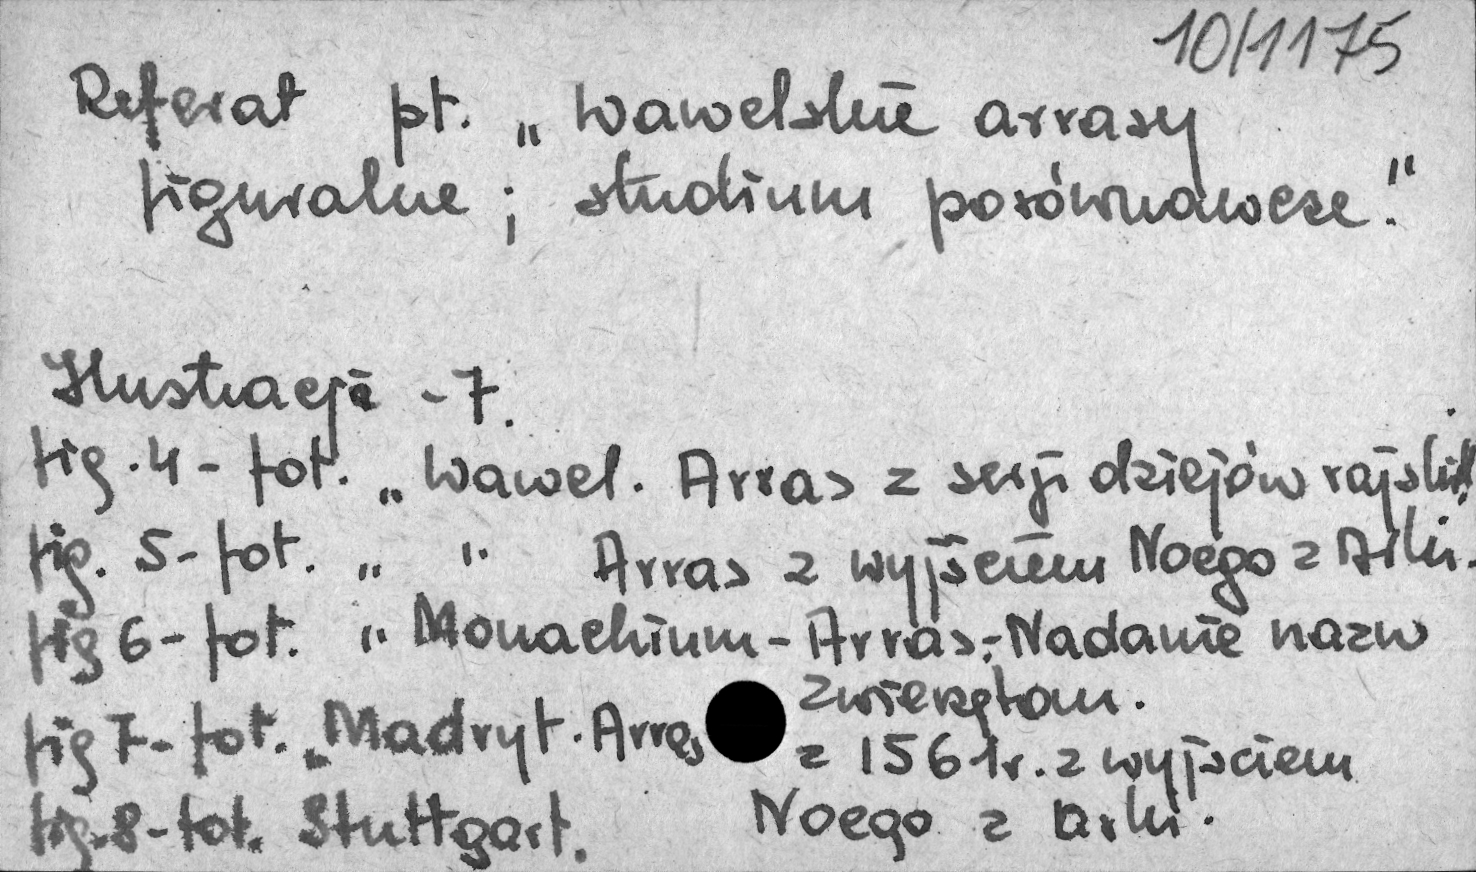 10/1175
Referat pt. „Wawelskie arrasy
figuralne ; studium porównawcze."
Ilustracje - 7.
fig. 4 - fot. „Wawel. Arras z serji dziejów rajskich
fig. 5 - fot. „ " Arras z wyjściem Noego z Arki.
fig 6 - fot. „Monachium - Arras; Nadanie nazw
zwierzętom.
fig 7 - fot. „Madryt. Arras z 1561r. z wyjściem
Noego z arki.
fig. 8 - fot. Stuttgart.